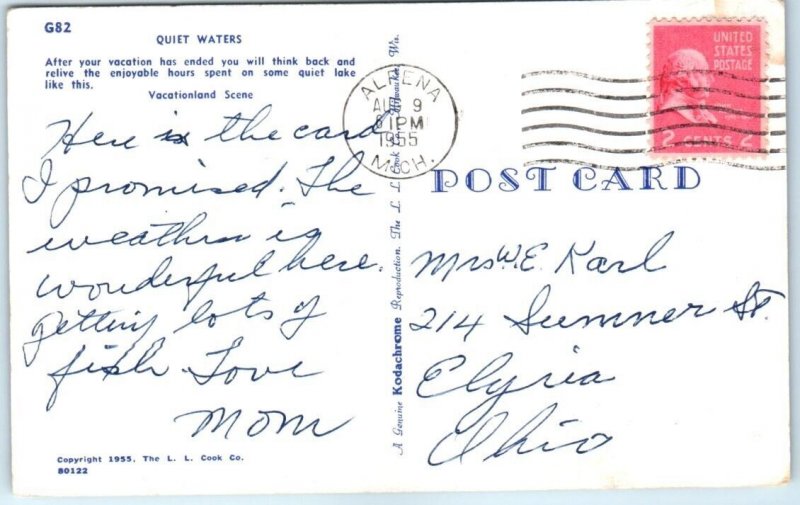 G82
QUIET WATERS
After your vacation has ended you will think back and
relive the enjoyable hours spent on some quiet lake
like this.
Vacationland Scene
Here is the card
I promised. The
weather is
wonderful here.
getting lots of
fish. Love
Mom
Copyright 1955, The L. L. Cook Co.
80122
A Genuine Kodachrome Reproduction. The L. L. Cook Co., Milwaukee, Wis.
ALPENA
AUG 9
1 PM
1955
MICH.
UNITED
STATES
POSTAGE
2 CENTS 2
POST CARD
Mrs W.E. Karl
214 Sumner St.
Elyria
Ohio